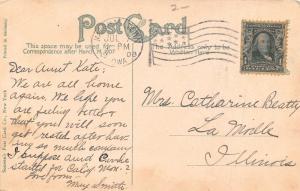 2-
Post Card.
This space may be used for
Correspondence after March 1st 1907
The Address only to be
JUL
PM
09
IOWA
Dear Aunt Kate:
We are all
home again.
We hope you
are feeling better
that you will soon
get rested after hav-
ing so much company
I suppose aunt
started for Calif. Mon.
Love from
May Smith
Mrs. Catherine Beatty
La Moille
Illinois